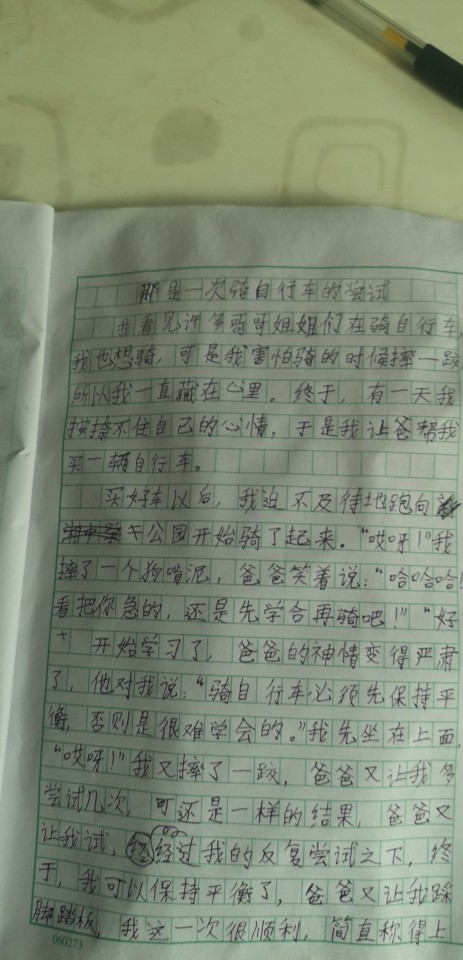 那是一次骑自行车的尝试
我看见许多哥哥姐姐们在骑自行车,
我也想骑,可是我害怕骑的时候摔一跤
所以我一直藏在心里。终于,有一天我
按捺不住自己的心情,于是我让爸帮我
买一辆自行车。
买好车以后,我迫不及待地跑向
公园开始骑了起来。“哎呀!”我
摔了一个狗啃泥,爸爸笑着说:“哈哈哈!
看把你急的,还是先学会再骑吧!”“好
开始学习了,爸爸的神情变得严肃
了,他对我说:“骑自行车必须先保持平
衡,否则是很难学会的。”我先坐在上面,
“哎呀!”我又摔了一跤,爸爸又让我多
尝试几次,可还是一样的结果,爸爸又
让我试,经过我的反复尝试之下,终
于,我可以保持平衡了,爸爸又让我踩
脚踏板,我这一次很顺利,简直称得上
060273